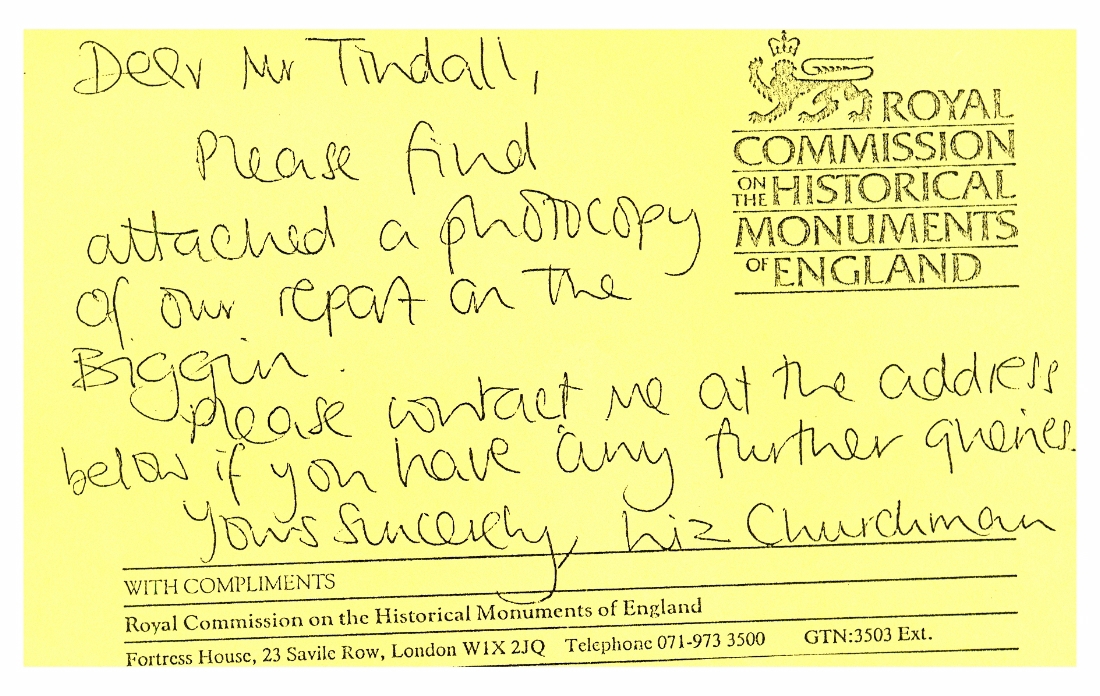 Dear Mr Tindall,
Please find
attached a photocopy
of our report on the
Biggin.
please contact me at the address
below if you have any further queries.
Yours sincerely, Liz Churchman
ROYAL
COMMISSION
ON THE HISTORICAL
MONUMENTS
OF ENGLAND
WITH COMPLIMENTS
Royal Commission on the Historical Monuments of England
Fortress House, 23 Savile Row, London W1X 2JQ Telephone 071-973 3500 GTN:3503 Ext.